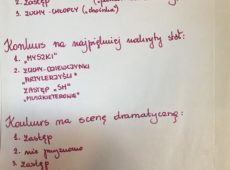 2. ZASTĘP
3. ZUCHY-CHŁOPCY („
Konkurs na najpiękniej nakryty stół:
1. „MYSZKI"
2. ZUCHY-DZIEWCZYNKI
"ARTYLERZYŚCI"
ZASTĘP „SH"
„MUSZKIETEROWIE"
Konkurs na scenę dramatyczną:
1. Zastęp
2. nie przyznano
3. Zastęp